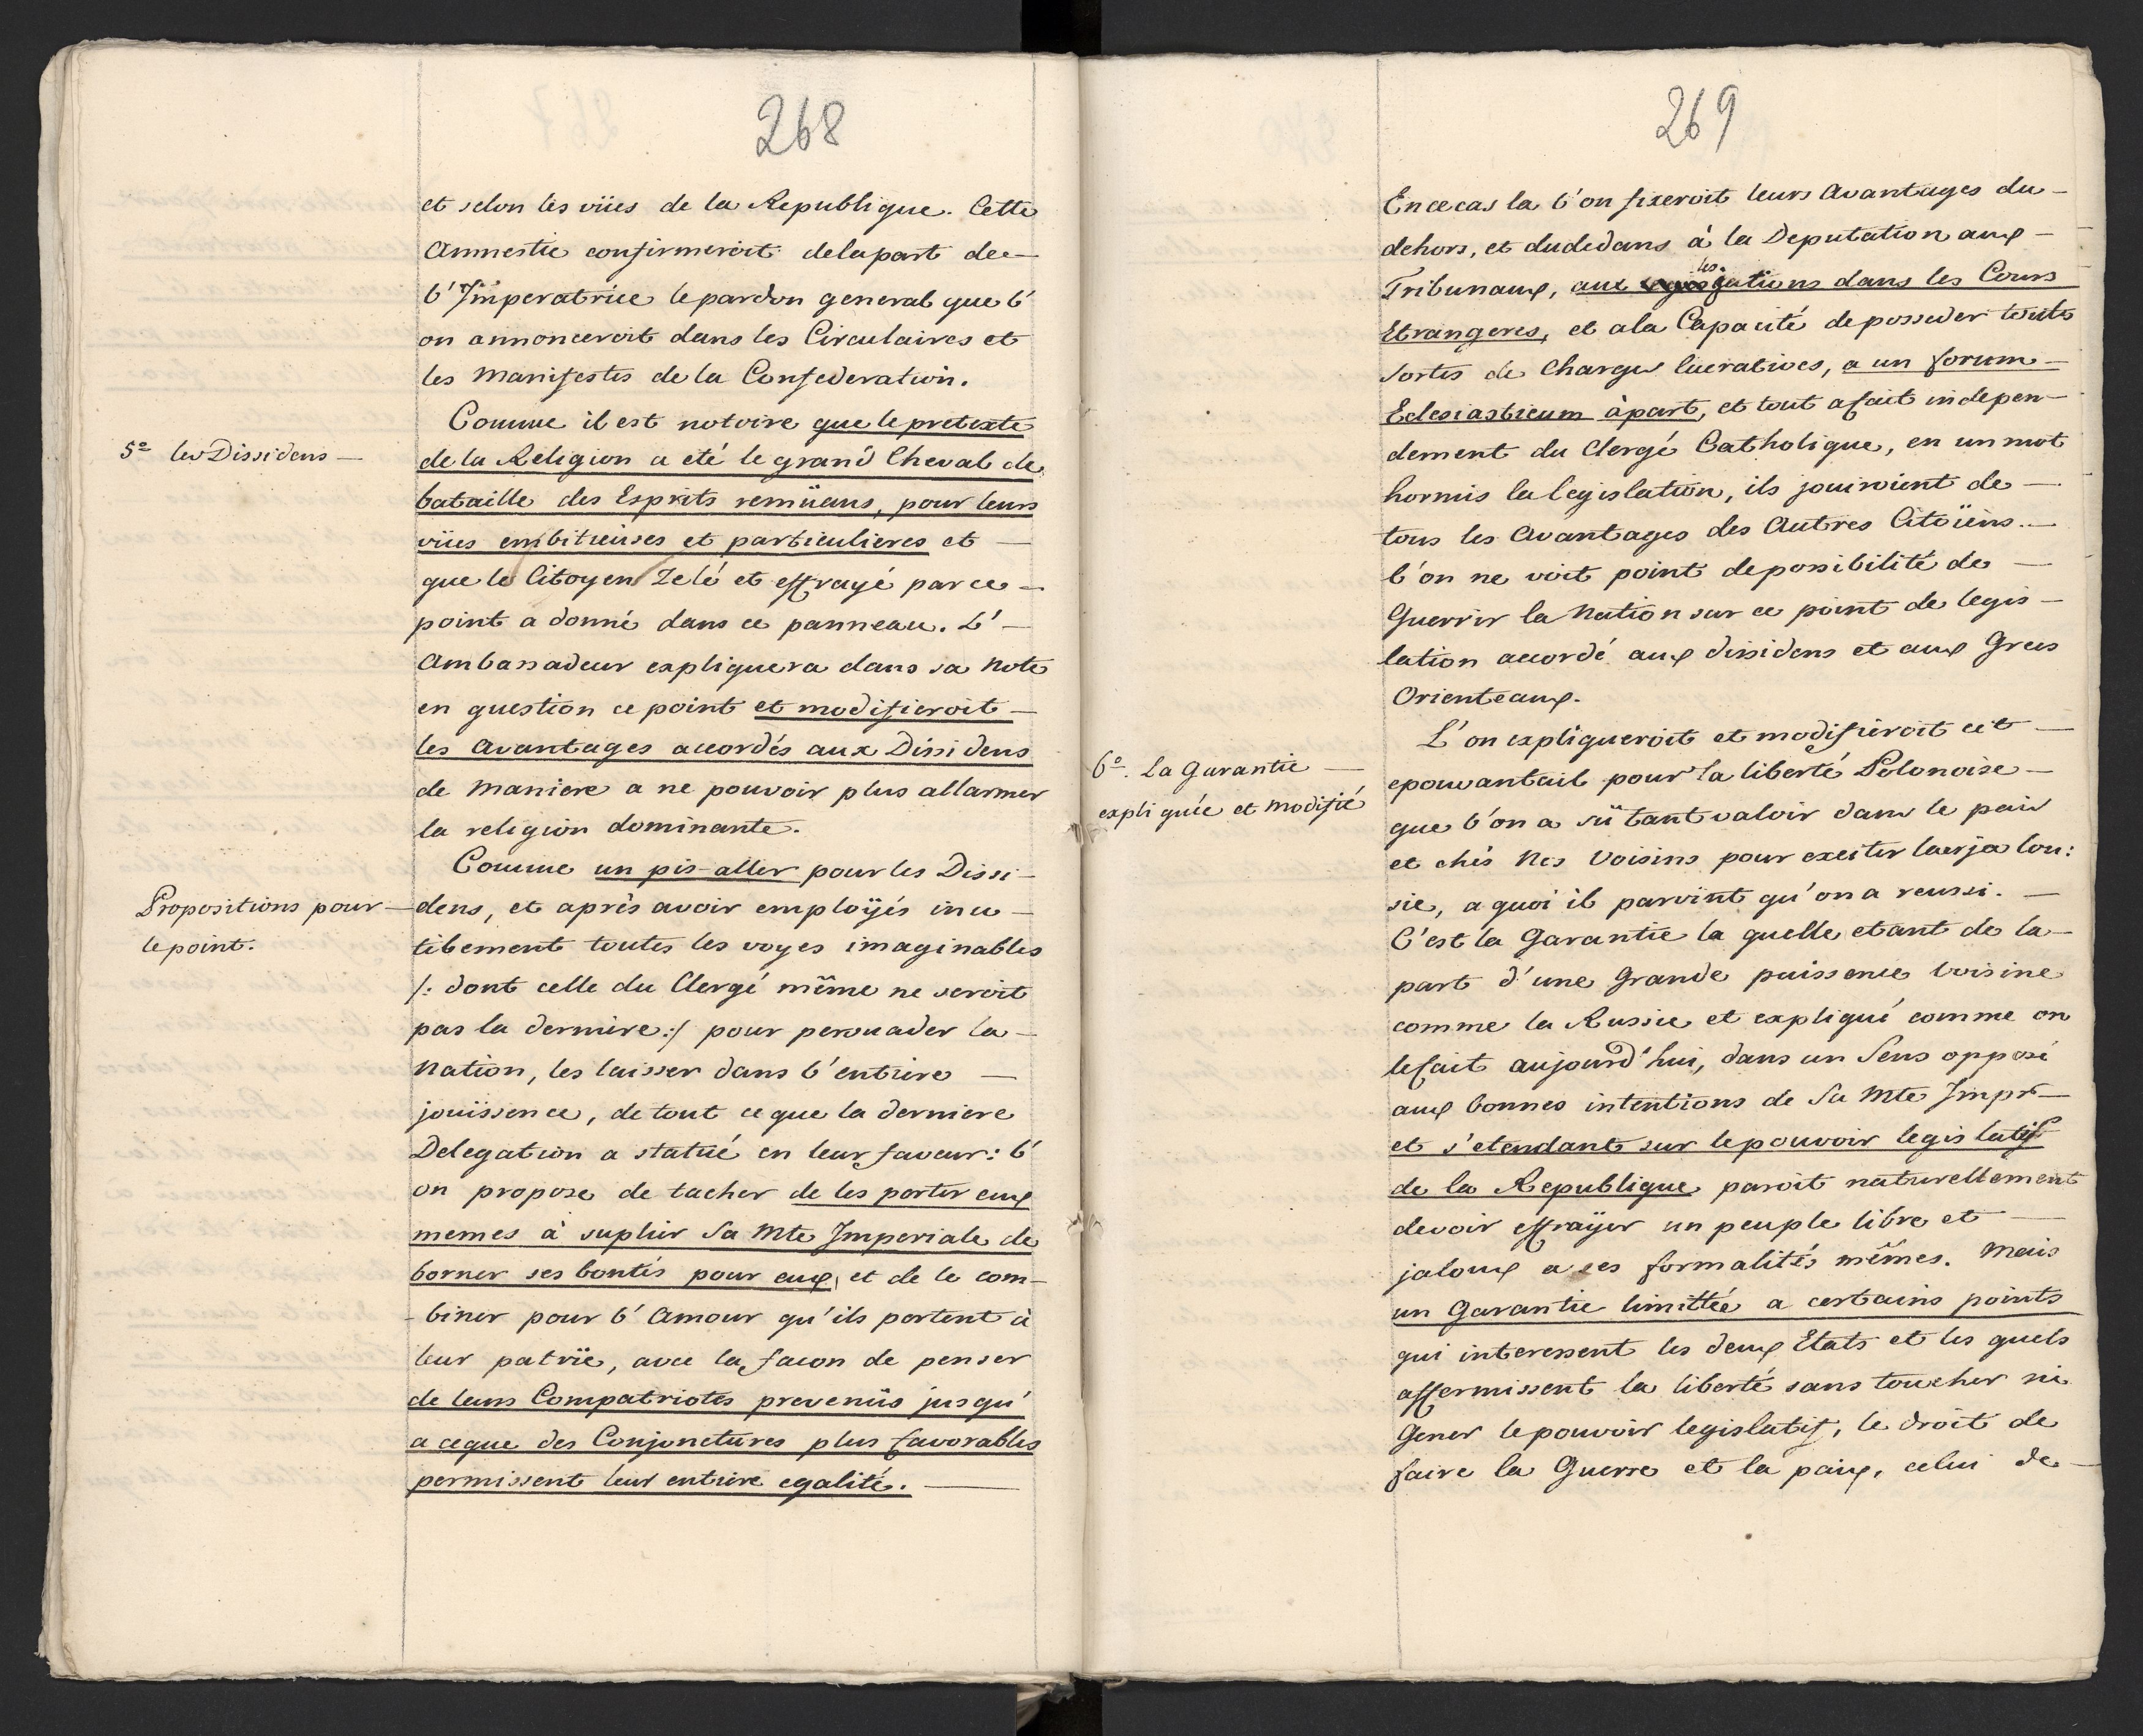 268
et selon les vües de la Republique. Cette
Amnestie confirmeroit delapart de
l'Imperatrice lepardon general que l'
on annonceroit dans les Circulaires et
les Manifestes de la Confederation.
Comme il est notoire que le pretexte
5º les Dissidens —
de la Religion a eté le grand Cheval de
bataille des Esprits remüans, pour leurs
vües embitieuses et particulieres et —
que le Citoyen Zelé et effrayé par ce —
point a donné dans ce panneau. L' —
Ambassadeur expliquera dans sa Note
en question ce point et modifieroit —
les Avantages accordés aux Dissidens
de Maniere a ne pouvoir plus allarmer
la religion dominante.
Comme un pis-aller pour les Dissi-
Propositions pour —
le point.
dens, et après avoir employés inu —
tilement toutes les voyes imaginables
/: dont celle du Clergé même ne seroit
pas la derniere :/ pour persuader la —
Nation, les laisser dans l'entiere —
jouissence, de tout ce que la derniere
Delegation a statüé en leur faveur: l'
on propose de tacher de les porter eux
memes à suplier Sa Mte Imperiale de
borner ses bontés pour eux, et de le com-
-biner pour l'Amour qu'ils portent à
leur patrïe, avec la facon de penser
de leurs Compatriotes prevenüs jusqu'
a ceque des Conjonctures plus favorables
permissent leur entiere egalité. —
269
En ce cas la l'on fixeroit leurs Avantages du —
dehors, et dudedans à la Deputation aux —
Tribunaux, aux les gations dans les Cours
Etrangeres, et ala Capacité deposseder toute
Sortes de Charges lucratives, a un forum —
Eclesiasticum àpart, et tout afait indepen —
dement du Clergé Catholique, en un mot
hormis la legislation, ils jouiroient de —
tous les Avantages des Autres Citoïens. —
l'on ne voit point deposibilité de —
Guerrir la Nation sur ce point de legis —
lation accordé aux dissidens et aux Grecs
Orienteaux.
L'on expliqueroit et modifieroit cet —
6º. La Garantie —
expliquée et modifié
epouvantail pour la liberté Polonoise —
que l'on a sü tant valoir dans le païs
et chés Nos Voisins pour exciter leurjalou:
sie, a quoi il paroint qu'on a reussi. —
C'est la Garantie la quelle etant de la —
part d'une Grande puissence Voisine
comme la Russie et expliqué comme on
lefait aujourd'hui, dans un Sens opposé
aux bonnes intentions de Sa Mte Impr —
et s'etendant sur le pouvoir legislatif
de la Republique paroit naturellement
devoir effrayer un peuple libre et —
jaloux a ses formalités mêmes. Mais
un Garantie limittée a certains points
qui interessent les deux Etats et les quels
affermissent la liberté sans toucher ni
Gener lepouvoir legislatif, le droit de
faire la Guerre et la paix, celui de —